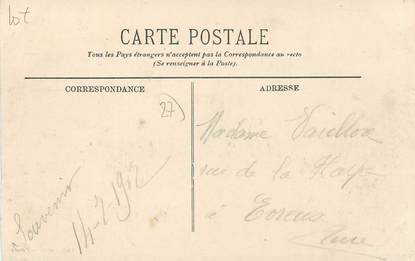 Lot
CARTE POSTALE
Tous les Pays étrangers n'acceptent pas la Correspondance au recto
(Se renseigner à la Poste).
CORRESPONDANCE
ADRESSE
27)
Souvenir
14-7-1902
Madame
rue de la Harpe
à Evreux
Eure